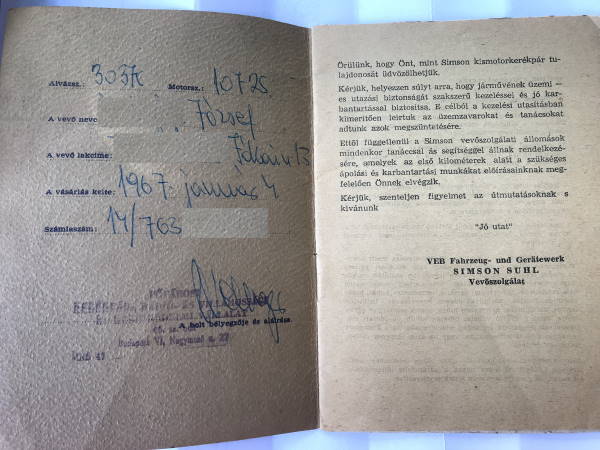 Alvázsz.: Motorsz.: 10725
A vevő neve József
A vevő lakcíme:
A vásárlás kelte: 1967 január 4
Számlaszám: 14/763
A bolt bélyegzője és aláírása.
Budapest VI, Nagymező u.
Örülünk, hogy Önt, mint Simson kismotorkerékpár tu-
lajdonosát üdvözölhetjük.
Kérjük, helyezzen súlyt arra, hogy járművének üzemi —
es utazási biztonságát szakszerű kezeléssel és jó kar-
bantartással biztosítsa. E célból a kezelési utasításban
kimerítően leírtuk az üzemzavarokat és tanácsokat
adtunk azok megszüntetésére.
Ettől függetlenül a Simson vevőszolgálati állomások
mindenkor tanáccsal és segítséggel állnak rendelkezé-
sére, amelyek az első kilométerek alatt a szükséges
ápolási és karbantartási munkákat előírásainknak meg-
felelően Önnek elvégzik.
Kérjük, szenteljen figyelmet az útmutatásoknak s
kívánunk
"Jó utat"
VEB Fahrzeug- und Gerätewerk
SIMSON SUHL
Vevőszolgálat